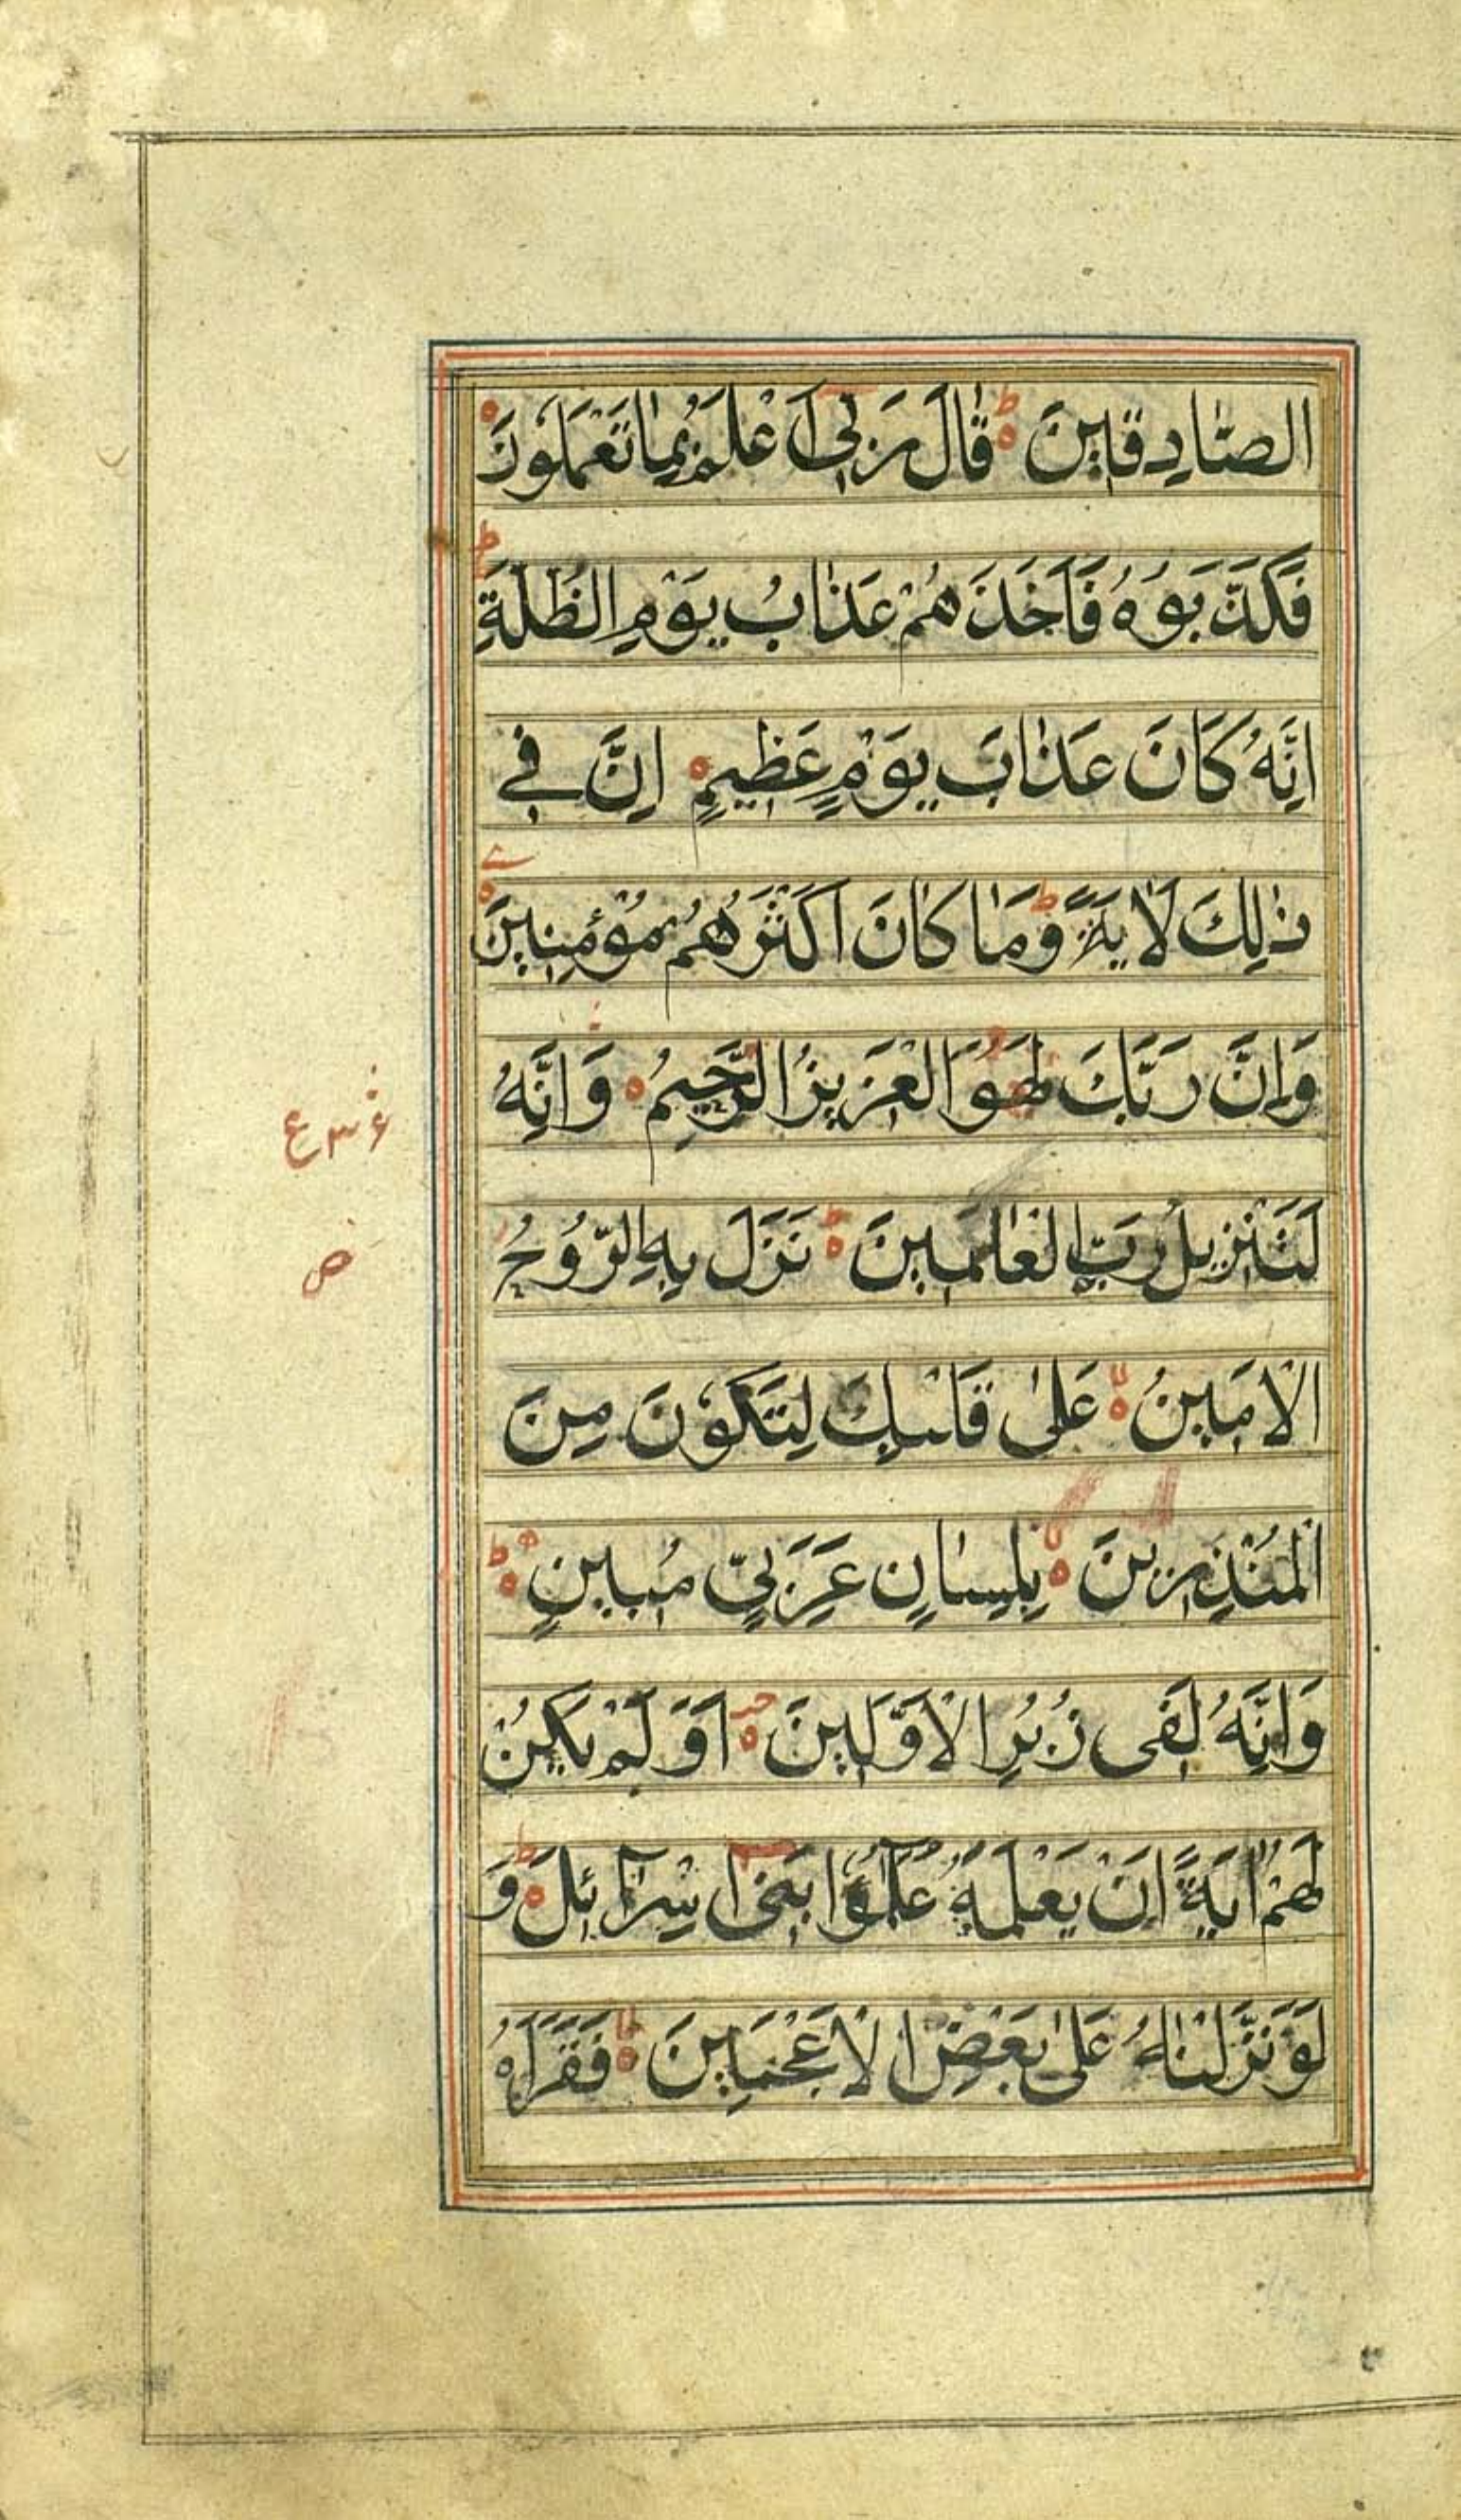 الصّٰادِقٖينَ ط قٰالَ رَبّٖى اَعْلَمُ بِمٰا تَعْمَلُونَ
فَكَذَّبُوهُ فَاَخَذَهُمْ عَذٰابُ يَوْمِ الظُّلَّةِ ط
اِنَّهُ كَانَ عَذٰابَ يَوْمٍ عَظٖيمٍ اِنَّ فٖى
ذٰلِكَ لَاٰيَةً ط وَمٰا كٰانَ اَكْثَرُهُمْ مُؤْمِنٖينَ
وَاِنَّ رَبَّكَ لَهُوَ الْعَزٖيزُ الرَّحٖيمُ وَاِنَّهُ
ع
لَتَنْزٖيلُ رَبِّ الْعٰالَمٖينَ ط نَزَلَ بِهِ الرُّوحُ
ص
الْاَمٖينُ لا عَلٰى قَلْبِكَ لِتَكُونَ مِنَ
الْمُنْذِرٖينَ بِلِسٰانٍ عَرَبِىٍّ مُبٖينٍ ط
وَاِنَّهُ لَفٖى زُبُرِ الْاَوَّلٖينَ اَوَلَمْ يَكُنْ
لَهُمْ اٰيَةً اَنْ يَعْلَمَهُ عُلَمٰؤُا بَنٖى اِسْرٰٓائٖلَ ط وَ
لَوْ نَزَّلْنٰاهُ عَلٰى بَعْضِ الْاَعْجَمٖينَ لا فَقَرَاَهُ